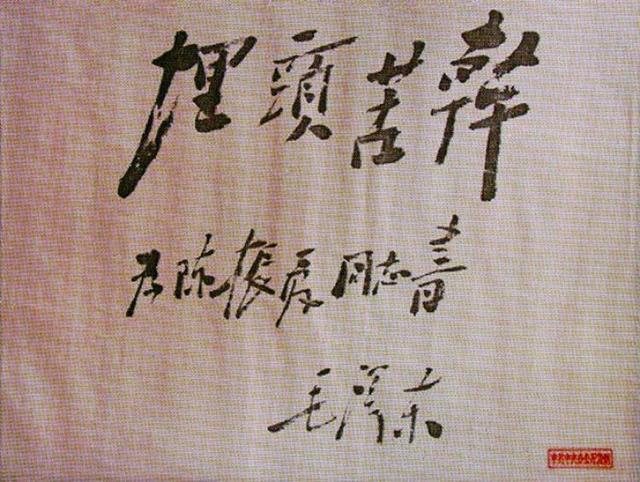 埋頭苦幹
為陳振夏同志書
毛澤東